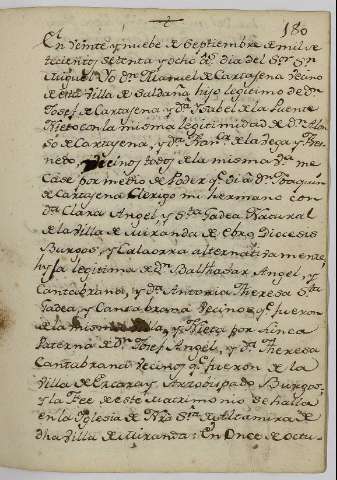 180
En veinte y nuebe de Septiembre de mil se
tecientos setenta y ocho dia del Sor Sn
Miguel Yo Dn Manuel de Cartajena vecino
de esta Villa de Saldaña hijo legitimo de Dn
Josef de Cartajena y Da Isabel de la Puente
Nieto con la misma legitimidad de Dn Alon
so de Cartajena, y Da Franca de la Vega y
vecinos todos de la misma Va me
case por medio de Poder qe di a Dn Joaquin
de Cartajena Clerigo mi hermano con
Da Clara Angel y Sta Gadea Natural
de la Villa de Miranda de Ebro Diocesis
Burgos, y Calaorra alternatibamente
hija legitima de Dn Balthasar Angel, y
Cantabrana, y Da Antonia Theresa Sta
Gadea, y Cantabrana vecinos qe fueron
de la misma Villa, y Nieta por Linea
Paterna de Dn Josef Angel, y Da Theresa
Cantabrana vecinos qe fueron de la
Villa de Ezcaray Arzobispado Burgos,
y la Fee de este Matrimonio se halla
en la Iglesia de Nra Sra de Altamira de
dha Villa de Miranda: En Once de octu-